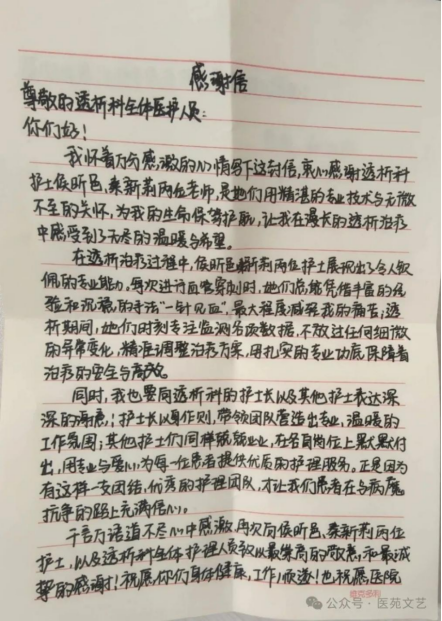 感谢信
尊敬的透析科全体医护人员：
你们好！
我怀着万分感激的心情写下这封信，衷心感谢透析科
护士侯昕邑、秦新莉两位老师，是她们用精湛的专业技术与无微
不至的关怀，为我的生命保驾护航，让我在漫长的透析治疗
中感受到了无尽的温暖与希望。
在透析治疗过程中，侯昕邑 新莉两位护士展现出了令人钦
佩的专业能力。每次进行血管穿刺时，她们总能凭借丰富的经
验和沉稳的手法“一针见血”，最大程度减轻我的痛苦；透
析期间，她们时刻专注监测各项数据，不放过任何细微
的异常变化，精准调整治疗方案，用扎实的专业功底保障着
治疗的安全与高效。
同时，我也要向透析科的护士长以及其他护士表达深
深的谢意！护士长以身作则，带领团队营造出专业、温暖的
工作氛围；其他护士们同样兢兢业业，在各自岗位上默默付
出，用专业与爱心为每一位患者提供优质的护理服务。正是因为
有这样一支团结、优秀的护理团队，才让我们患者在与病魔
抗争的路上充满信心。
千言万语道不尽心中感激，再次向侯昕邑、秦新莉两位
护士，以及透析科全体护理人员致以最崇高的敬意和最诚
挚的感谢！祝愿你们身体健康，工作顺遂！也祝愿医院
公众号·医苑文艺